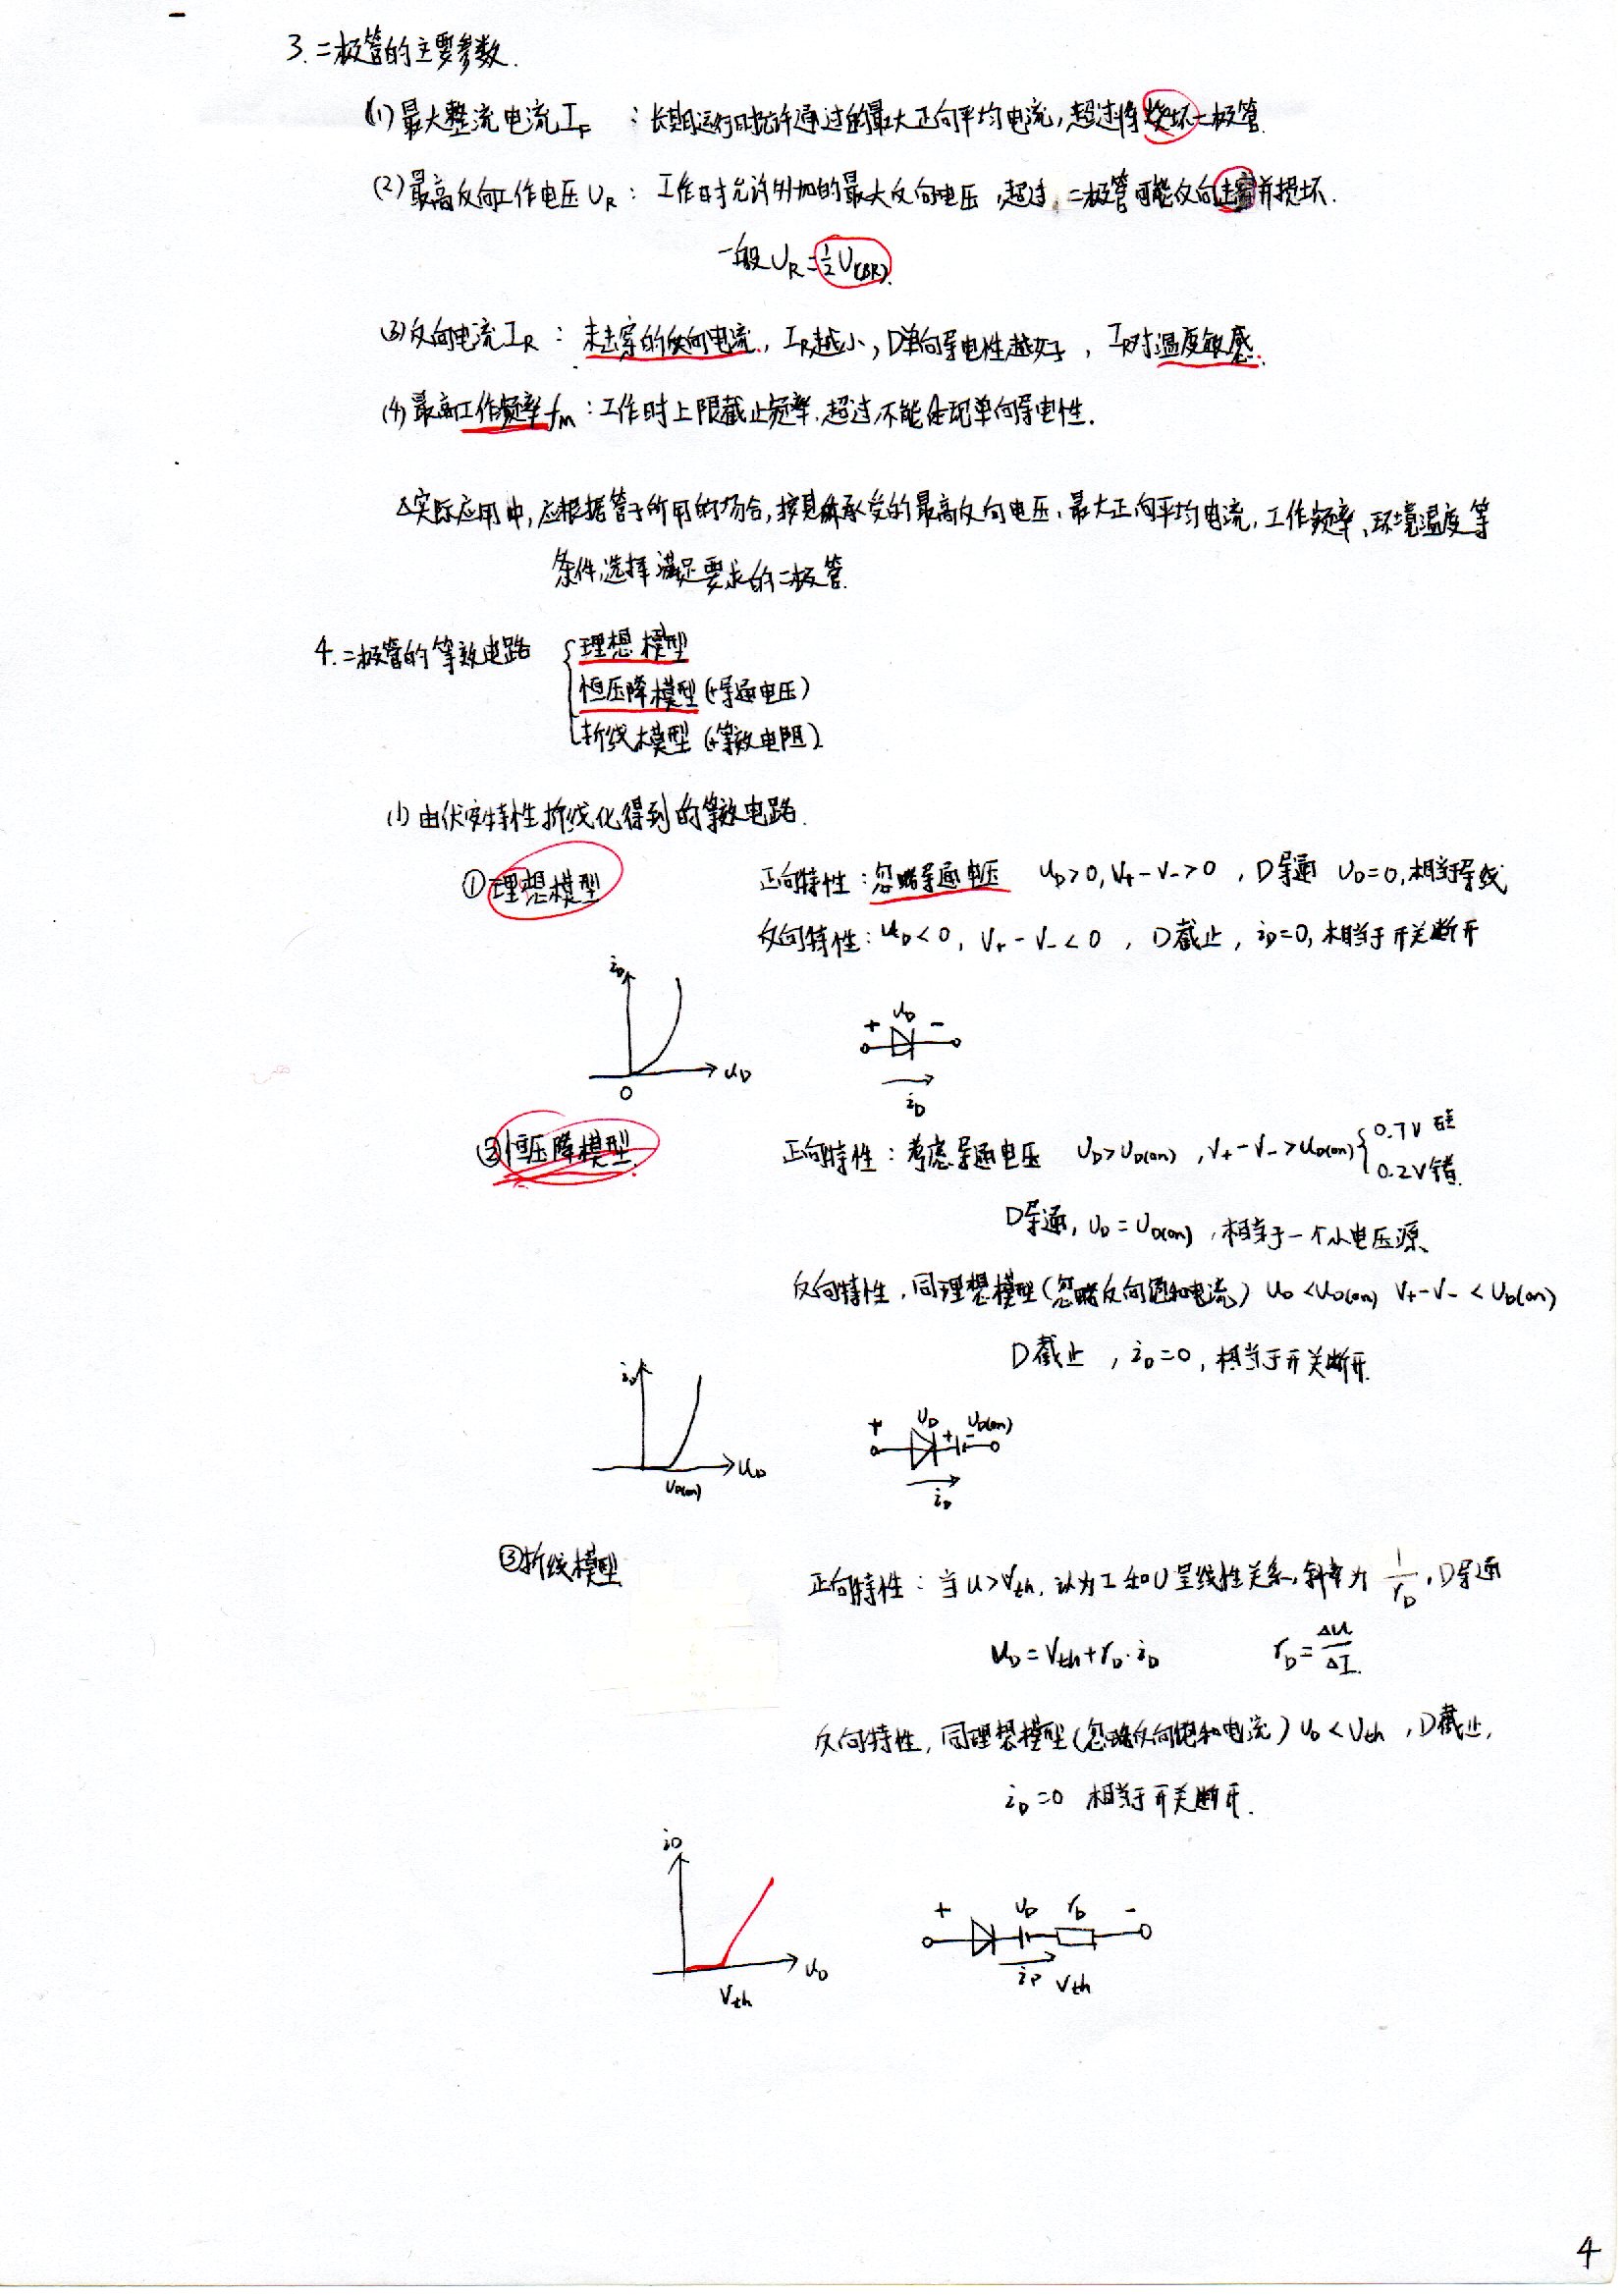 3. 二极管的主要参数.
(1) 最大整流电流 I_F : 长期运行时允许通过的最大正向平均电流, 超过将烧坏二极管.
(2) 最高反向工作电压 U_R : 工作时允许外加的最大反向电压, 超过, 二极管可能反向击穿并损坏.
一般 U_R = ½ U_(BR).
(3) 反向电流 I_R : 未击穿的反向电流., I_R越小, D单向导电性越好, I_R对温度敏感.
(4) 最高工作频率 f_m : 工作时上限截止频率, 超过不能体现单向导电性.
△实际应用中, 应根据管子所用的场合, 按其承受的最高反向电压、最大正向平均电流, 工作频率、环境温度等
条件, 选择满足要求的二极管.
4. 二极管的等效电路 { 理想模型
恒压降模型 (+导通电压)
折线模型 (+等效电阻)
(1) 由伏安特性折线化得到的等效电路.
① 理想模型
正向特性: 忽略导通电压 U_D>0, V₊-V₋>0, D导通 U_D=0, 相当导线
反向特性: U_D<0, V₊-V₋<0, D截止, i_D=0, 相当于开关断开
i_D
u_D
0
+ U_D -
i_D
② 恒压降模型.
正向特性: 考虑导通电压 U_D>U_D(on), V₊-V₋>U_D(on) { 0.7V 硅
0.2V 锗.
D导通, U_D=U_D(on), 相当于一个小电压源、
反向特性, 同理想模型(忽略反向饱和电流) U_D<U_D(on) V₊-V₋<U_D(on)
D截止, i_D=0, 相当于开关断开.
i_D
u_D
U_D(on)
+ U_D + - U_D(on)
i_D
③ 折线模型
正向特性: 当U>V_th, 认为I和U呈线性关系, 斜率为 1/r_D, D导通
u_D=V_th+r_D·i_D r_D=Δu/ΔI.
反向特性, 同理想模型(忽略反向饱和电流) U_D<V_th, D截止,
i_D=0 相当于开关断开.
i_D
u_D
V_th
+ U_D r_D -
i_D V_th
4